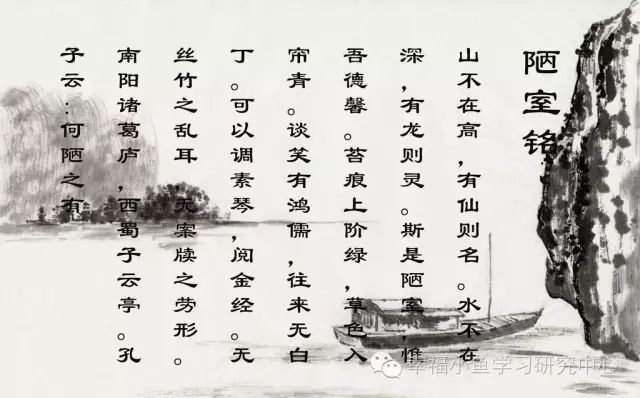 陋室铭
山不在高，有仙则名。水不在
深，有龙则灵。斯是陋室，惟
吾德馨。苔痕上阶绿，草色入
帘青。谈笑有鸿儒，往来无白
丁。可以调素琴，阅金经。无
丝竹之乱耳 无案牍之劳形。
南阳诸葛庐，西蜀子云亭。孔
子云：何陋之有
幸福小鱼学习研究中心